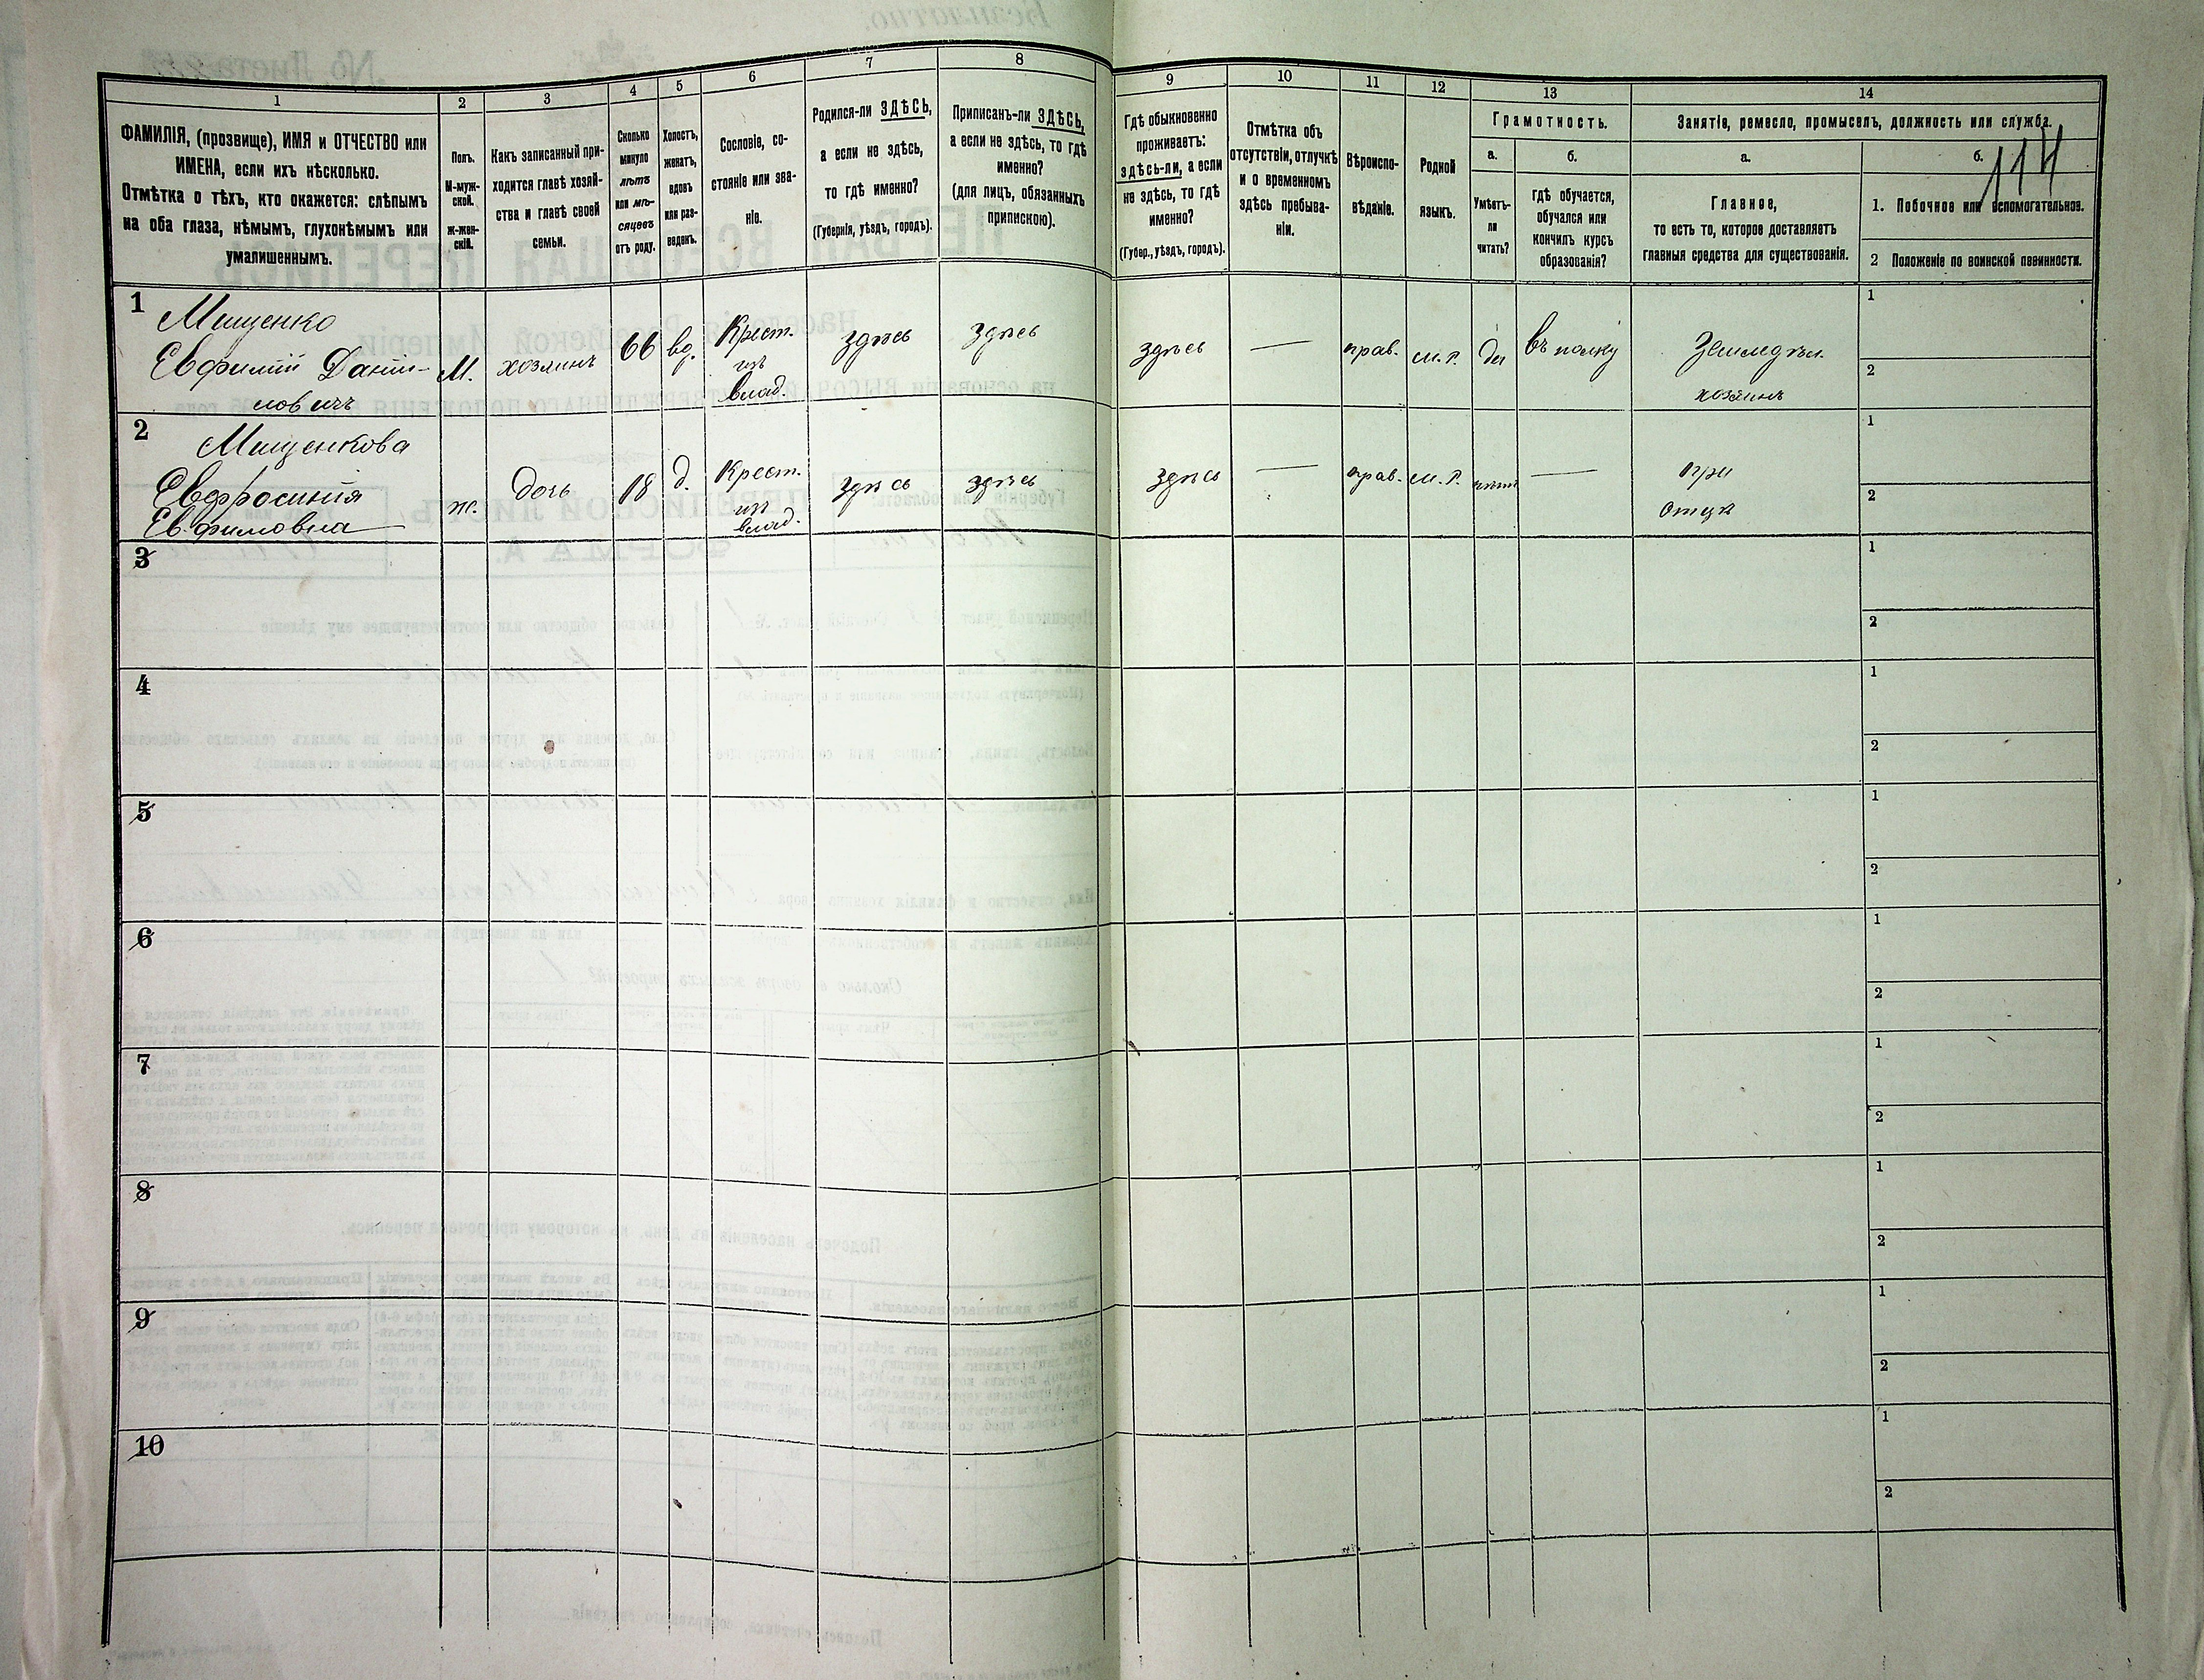 1
2
3
4
5
6
7
8
9
10
11
12
13
14
ФАМИЛІЯ, (прозвище), ИМЯ и ОТЧЕСТВО или
ИМЕНА, если ихъ нѣсколько.
Отмѣтка о тѣхъ, кто окажется: слѣпымъ
на оба глаза, нѣмымъ, глухонѣмымъ или
умалишеннымъ.
Полъ.
М-муж-
ской.
ж-жен-
скій.
Какъ записанный при-
ходится главѣ хозяй-
ства и главѣ своей
семьи.
Сколько
минуло
лѣтъ
или мѣ-
сяцевъ
отъ роду.
Холостъ,
женатъ,
вдовъ
или раз-
веденъ.
Сословіе, со-
стояніе или зва-
ніе.
Родился-ли ЗДѢСЬ,
а если не здѣсь,
то гдѣ именно?
(Губернія, уѣздъ, городъ).
Приписанъ-ли ЗДѢСЬ,
а если не здѣсь, то гдѣ
именно?
(для лицъ, обязанныхъ
припискою).
Гдѣ обыкновенно
проживаетъ:
здѣсь-ли, а если
не здѣсь, то гдѣ
именно?
(Губер., уѣздъ, городъ).
Отмѣтка объ
отсутствіи, отлучкѣ
и о временномъ
здѣсь пребыва-
ніи.
Вѣроиспо-
вѣданіе.
Родной
языкъ.
Грамотность.
а.
Умѣетъ-
ли
читать?
б.
гдѣ обучается,
обучался или
кончилъ курсъ
образованія?
Занятіе, ремесло, промыселъ, должность или служба.
а.
Главное,
то есть то, которое доставляетъ
главныя средства для существованія.
б.
114
1. Побочное или вспомогательное.
2 Положеніе по воинской повинности.
1
Мищенко
Евфимій Даніи-
ловичъ
М.
хозяинъ
66
вд.
Крест.
изъ
влад.
здѣсь
здѣсь
здѣсь
—
прав.
м.р.
да
въ полку
Земледѣл.
хозяинъ
1
2
2
Мищенкова
Евфросинія
Евфимовна
ж.
дочь
18
д.
Крест.
изъ
влад.
здѣсь
здѣсь
здѣсь
—
прав.
м.р.
нѣтъ
—
при
отцѣ
1
2
3
1
2
4
1
2
5
1
2
6
1
2
7
1
2
8
1
2
9
1
2
10
1
2